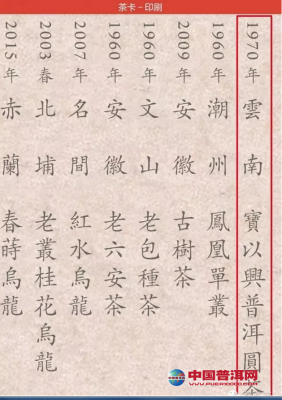 茶卡－印刷
1970年 雲南 寶以興普洱圓茶
1960年 潮州 鳳凰單叢
2009年 安徽 古樹茶
1960年 文山 老包種茶
1960年 安徽 老六安茶
2007年 名間 紅水烏龍
2003春 北埔 老叢桂花烏龍
2015年 赤蘭 春蒔烏龍
中国普洱网